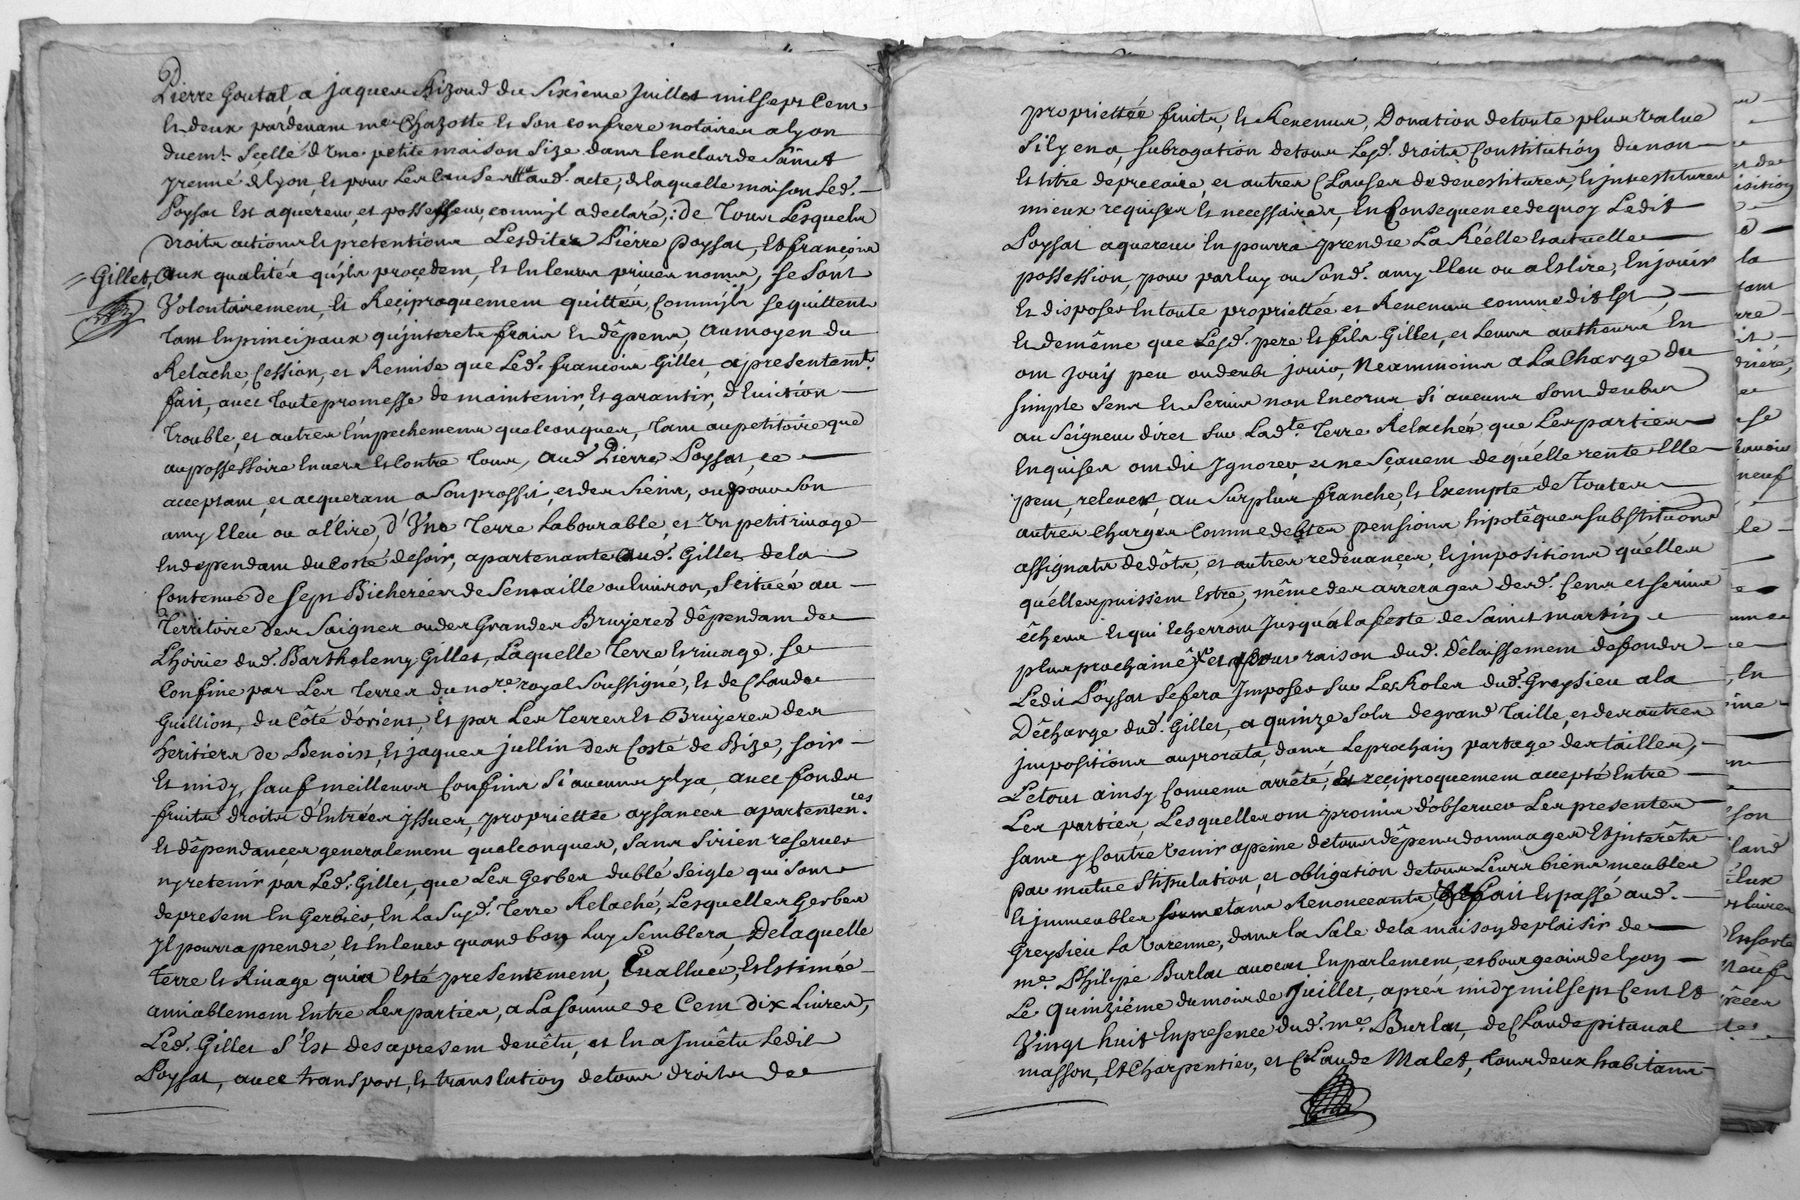 Pierre Goutal, a jaques Bizoud du sixième juillet mil sept Cent
Et deux pardevant me Chazotte Et son confrere notaires a lyon
duemt. scellé d'une petite maison size dans lenclos de Saint
yrenné de lyon, Et pour Les Causes aud. acte, de laquelle maison Led.
Poysat Est aquereur, et possesseur, comm'jl a declaré; de Tous Lesquels
droits actions Et pretentions Lesdites Pierre Poysat, Et françois
= Gillet, aux qualités qu'jls procedent, Et En leurs privés noms, se sont
Volontairement, Et Reciproquement quittéu, Comm'jls se quittent
Tant En principaux qu'jnterets frais Et dêpens, au moyen du
Relache, Cession, et Remise que Led. françois Gillet, a presentemt.
fait, avec Toute promesse de maintenir, Et garantir, d'Eviction
Trouble, et autres Empechemens quelconques, Tant au petitoire que
au possessoire Envers Et Contre Tous, aud. Pierre Poysat, ce
acceptant, et acquerant a Son proffit, et des siens, ou pour Son
amy Eleu ou a Elire, d'Vne Terre Labourable, et Vn petit rivage
En dependant du Costé de soir, apartenante aud. Gillet, de la
Contenue de sept Bicherées de Semaille ou Environ, Scituée au
Territoire des Saignes ou des Grandes Bruyeres dêpendant de
L'hoirie dud. Barthelemy Gillet, Laquelle Terre Et rivage se
Confine par Les Terres du nore. royal Soussigné, Et de Claude
Guillion, du Côté d'orient, Et par Les Terres Et Bruyeres des
heritiers de Benoist, Et jaques jullin des Costé de Bize, soir
Et midy, sauf meilleurs Confins Si aucuns y'lya, avec fonds
fruits droits d'Entrées yssues, proprietée aysances apartenences
Et dêpendances generalement quelconques, Sans Si rien reserver
ny retenir par Led. Gillet, que Les Gerbes du blé Seigle qui Sont
de present En Gerbier En La Susd. Terre Relaché, Lesquelles Gerbes
Jl pourra prendre, Et Enlever quand bon Luy Semblera, De laquelle
Terre Et Rivage qui a Esté presentement, Evalluée, Et Estimée
amiablement Entre Les parties, a La Somme de Cent Dix Livres,
Led. Gillet S'Est des a present devêtu, et En a jnvêtu Ledit
Poysat, avec transport, Et translation de tous droits de
proprietée fruits, Et Revenus, Donation de toute plus value
S'il y en a, subrogation de tous Lesd. droits Constitution du nom
Et titre de precaire, et autres Clauses de devestitures, Et jnvestitures
mieux requises Et necessaires, En Consequence de quoy Ledit
Poysat aquereur En pourra prendre La Réelle Et actuelle
possession, pour par luy ou Sond. amy Eleu ou a Eslire, En jouir
Et disposer En toute proprietée et Revenus comme dit Est,
Et de même que Lesd. pere Et fils Gillet, et Leurs autheurs En
ont jouÿ peu ou deub jouir, Neanmoins a La Charge du
simple Sens Et Servis non Encorus Si aucuns Sont deubs
au Seigneur direct Sur Ladte. Terre Relachée, que Les parties
Enquises ont dit jgnorer, et ne Sçavent de quélle rente Elle
peut, relever, au Surplus franche, Et Exempte de Toutes
autres charges Comme debtes pensions hipotêques substitutions
assignats de dôts, et autres redevances, Et jmpositions quélles
quélles puissent Estre, même des arrerages desd. Cens et servis
êcheus Et qui Echerront jusqu'a la feste de Saint martin
plus prochaine, et pour raison dud. Dêlaissement de fonds
Ledit Poysat se fera jmposer Sur Les Roles dud. Greysieu a la
Dêcharge dud. Gillet, a quinze sols de grand Taille, et des autres
jmpositions au prorata, dans Le prochain partage des tailles,
Le tout ainsy Convenu arrêté, Et reciproquement accepté Entre
Les parties, Lesquelles ont promis d'observer Les presentes
sans y Contrevenir a peine de tous dêpens dommages Et jnterêts
par mutue Stipulation, et obligation de tous Leurs biens meubles
Et jmmeubles soumetans Renonceants, fait Et passé aud.
Greysieu La Varenne, dans la Sale de la maison de plaisir de
me. Philipe Burlat avocat En parlement, et bourgeois de lyon
Le quinziéme du mois de juillet, aprés midy mil sept Cent Et
Vingt huit En presence dud. me. Burlat, de Claude pitaval
masson, Et Charpentier, et Claude Malet, Tous deux habitans